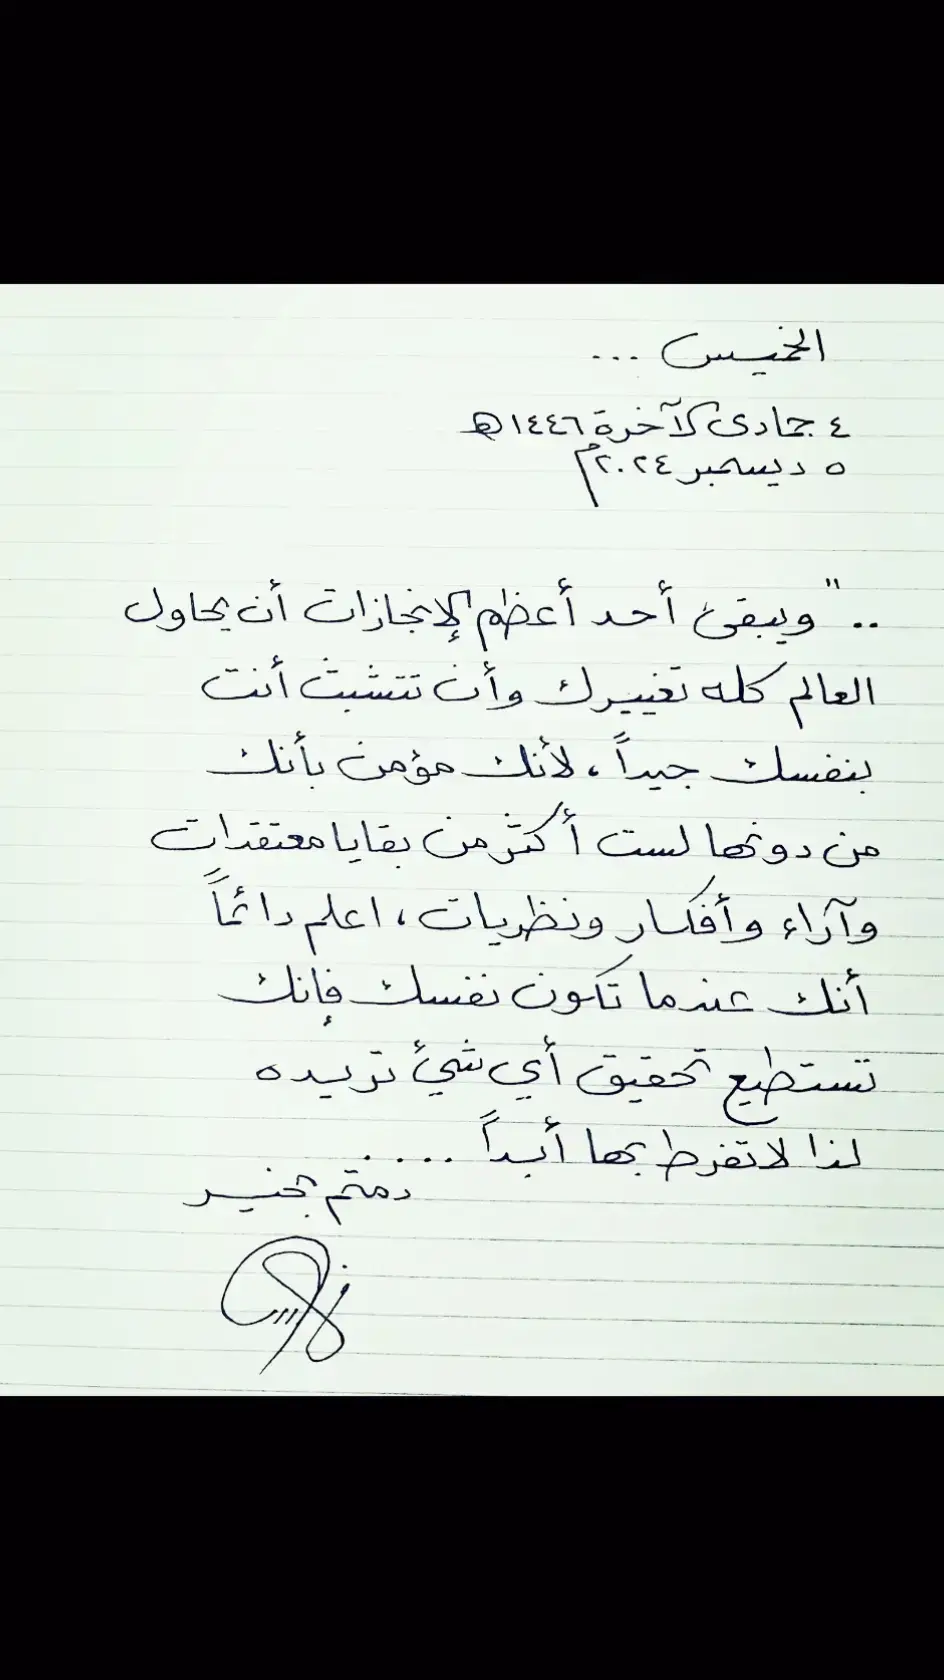 الخميس ...
٤ جمادى الآخرة ١٤٤٦هـ
٥ ديسمبر ٢٠٢٤م
.. "ويبقى أحد أعظم الإنجازات أن يحاول
العالم كله تغييرك وأن تتشبث أنت
بنفسك جيداً، لأنك مؤمن بأنك
من دونها لست أكثر من بقايا معتقدات
وآراء وأفكار ونظريات، اعلم دائماً
أنك عندما تكون نفسك فإنك
تستطيع تحقيق أي شئ تريده
لذا لا تفرط بها أبداً ....
دمتم بخير